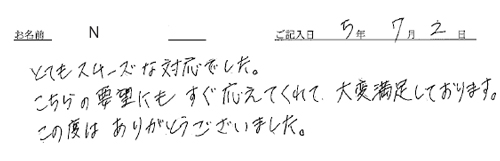 お名前 N ご記入日 5年 7月 2日
とてもスムーズな対応でした。
こちらの要望にも すぐ応えてくれて、大変満足しております。
この度は ありがとうございました。